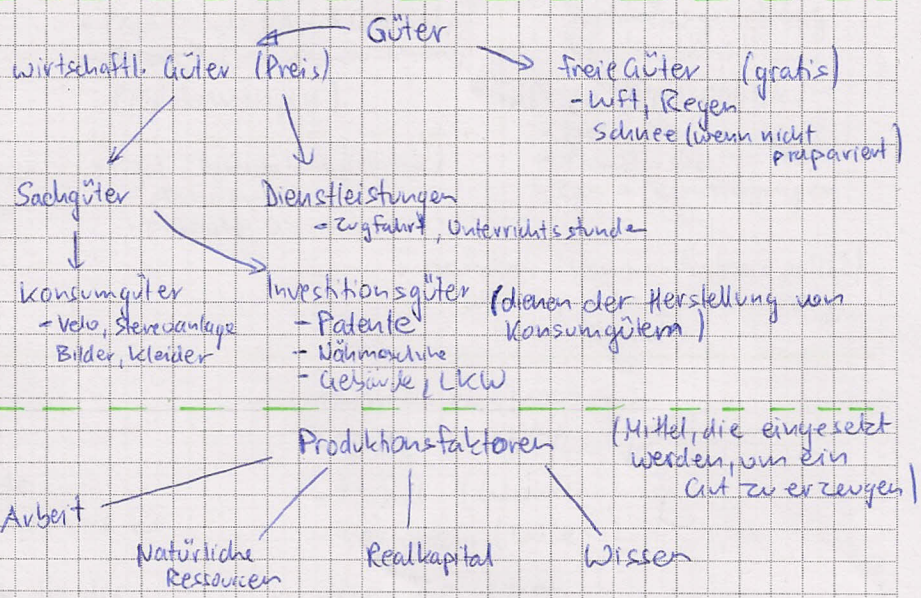 Güter
wirtschaftl. Güter (Preis)
freie Güter (gratis)
- Luft, Regen
Schnee (wenn nicht
präpariert)
Sachgüter
Dienstleistungen
- Zugfahrt, Unterrichtsstunde
Konsumgüter
- Velo, Stereoanlage
Bilder, Kleider
Investitionsgüter
(dienen der Herstellung von
Konsumgütern)
- Patente
- Nähmaschine
- Gebäude, LKW
Produktionsfaktoren
(Mittel, die eingesetzt
werden, um ein
Gut zu erzeugen)
Arbeit
Natürliche
Ressourcen
Realkapital
Wissen